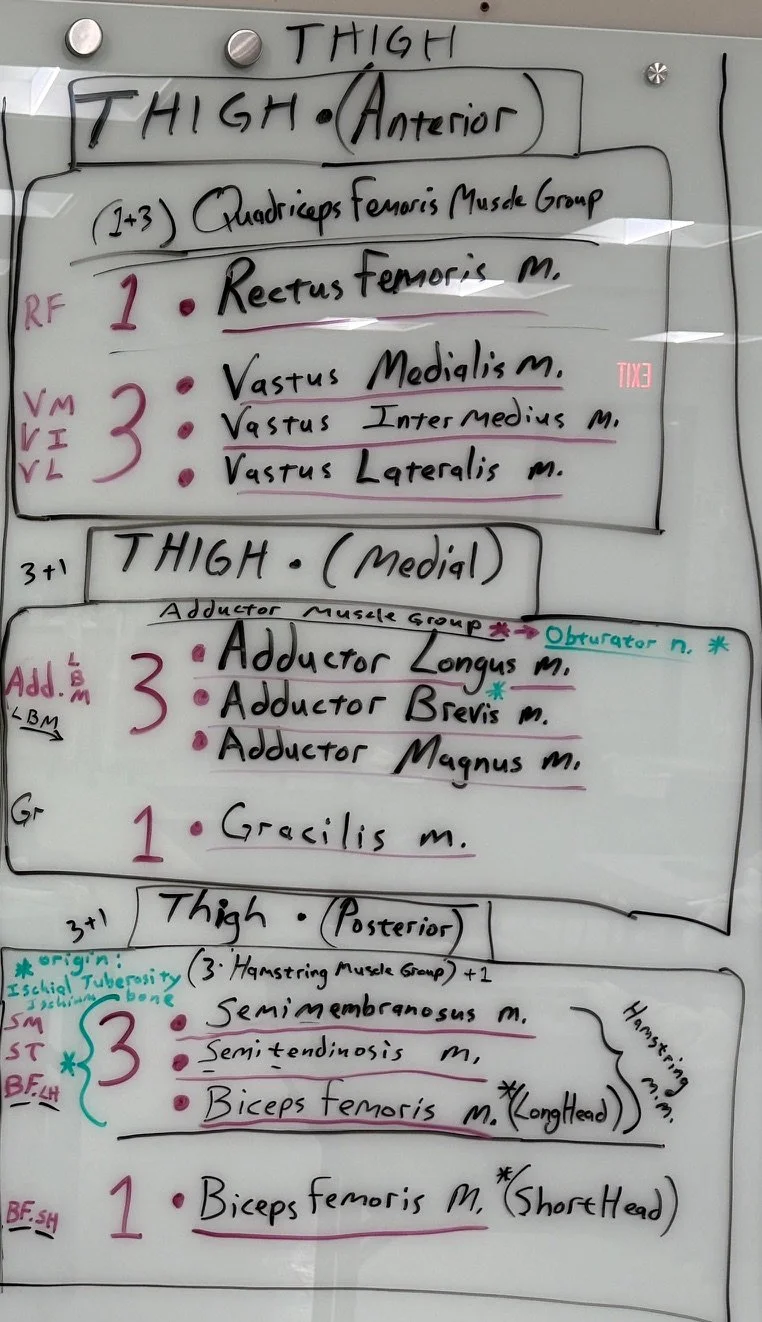 THIGH
THIGH • (Anterior)
(1+3) Quadriceps Femoris Muscle Group
RF 1 • Rectus Femoris m.
VM 3 • Vastus Medialis m.
EXIT
VI • Vastus Intermedius m.
VL • Vastus Lateralis m.
3+1 THIGH • (Medial)
Adductor Muscle Group * → Obturator n. *
Add. LBM 3 • Adductor Longus m.
LBM • Adductor Brevis * m.
• Adductor Magnus m.
Gr 1 • Gracilis m.
3+1 Thigh • (Posterior)
* origin: (3· Hamstring Muscle Group) +1
Ischial Tuberosity
Ischium bone
SM 3 • Semimembranosus m.
ST * • Semitendinosis m.
BF.LH • Biceps femoris m. *(Long Head)
Hamstring m.m.
BF.SH 1 • Biceps femoris m. *(Short Head)